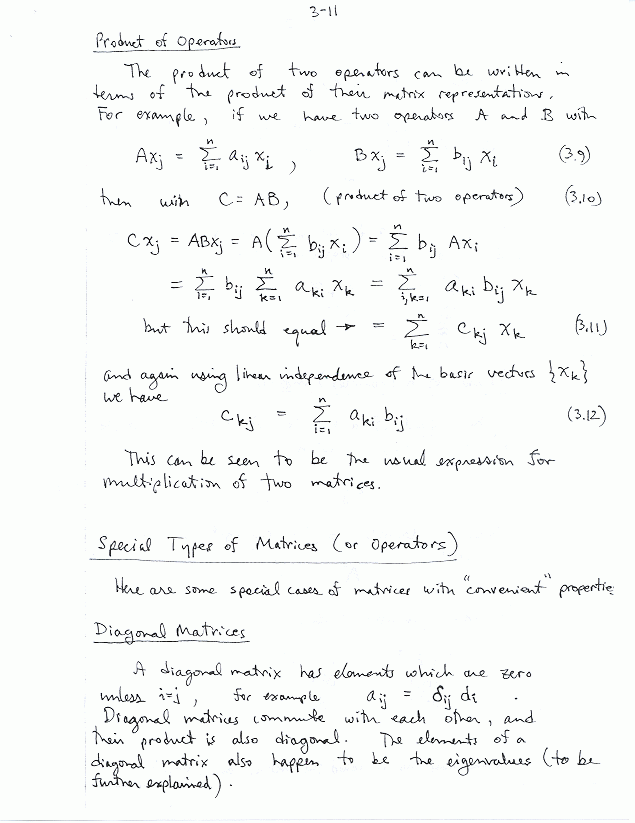 3-11
Product of Operators
The product of two operators can be written in
terms of the product of their matrix representations.
For example, if we have two operators A and B with
Axⱼ = ∑ᵢ₌₁ⁿ aᵢⱼ xᵢ , Bxⱼ = ∑ᵢ₌₁ⁿ bᵢⱼ xᵢ (3.9)
then with C = AB, (product of two operators) (3.10)
Cxⱼ = ABxⱼ = A(∑ᵢ₌₁ⁿ bᵢⱼ xᵢ) = ∑ᵢ₌₁ⁿ bᵢⱼ Axᵢ
= ∑ᵢ₌₁ⁿ bᵢⱼ ∑ₖ₌₁ⁿ aₖᵢ xₖ = ∑ᵢ,ₖ₌₁ⁿ aₖᵢ bᵢⱼ xₖ
but this should equal → = ∑ₖ₌₁ⁿ cₖⱼ xₖ (3.11)
and again using linear independence of the basic vectors {xₖ}
we have
cₖⱼ = ∑ᵢ₌₁ⁿ aₖᵢ bᵢⱼ (3.12)
This can be seen to be the usual expression for
multiplication of two matrices.
Special Types of Matrices (or Operators)
Here are some special cases of matrices with "convenient" propertie
Diagonal Matrices
A diagonal matrix has elements which are zero
unless i=j , for example aᵢⱼ = δᵢⱼ dᵢ .
Diagonal matrices commute with each other, and
their product is also diagonal. The elements of a
diagonal matrix also happen to be the eigenvalues (to be
further explained).